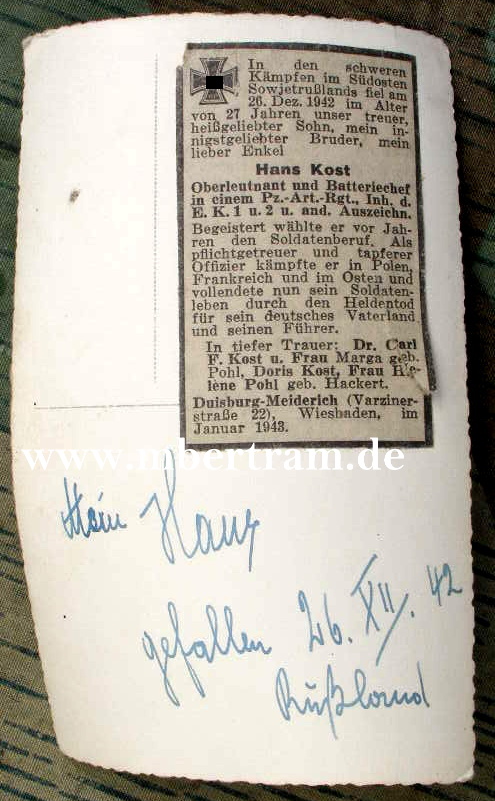 In den schweren
Kämpfen im Südosten
Sowjetrußlands fiel am
26. Dez. 1942 im Alter
von 27 Jahren unser treuer,
heißgeliebter Sohn, mein in-
nigstgeliebter Bruder, mein
lieber Enkel
Hans Kost
Oberleutnant und Batteriechef
in einem Pz.-Art.-Rgt., Inh. d.
E. K. 1 u. 2 u. and. Auszeichn.
Begeistert wählte er vor Jah-
ren den Soldatenberuf. Als
pflichtgetreuer und tapferer
Offizier kämpfte er in Polen,
Frankreich und im Osten und
vollendete nun sein Soldaten-
leben durch den Heldentod
für sein deutsches Vaterland
und seinen Führer.
In tiefer Trauer: Dr. Carl
F. Kost u. Frau Marga geb.
Pohl, Doris Kost, Frau He-
lene Pohl geb. Hackert.
Duisburg-Meiderich (Varziner-
straße 22), Wiesbaden, im
Januar 1943.
www.mbertram.de
Mein Hans
gefallen 26. XII. 42
Rußland